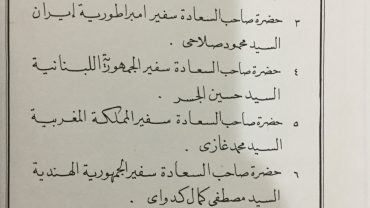 ٣ حضرة صاحب السعادة سفير امبراطورية إيران
السيد محمود صلاحي .
٤ حضرة صاحب السعادة سفير الجمهورية اللبنانية
السيد حسين الجسر .
٥ حضرة صاحب السعادة سفير المملكة المغربية
السيد محمد غازي .
٦ حضرة صاحب السعادة سفير الجمهورية الهندية
السيد مصطفى كمال كدواى .